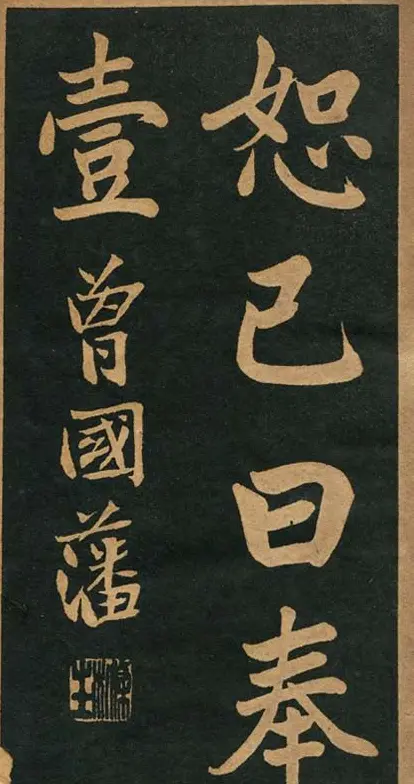 恕己曰奉
壹曾國藩